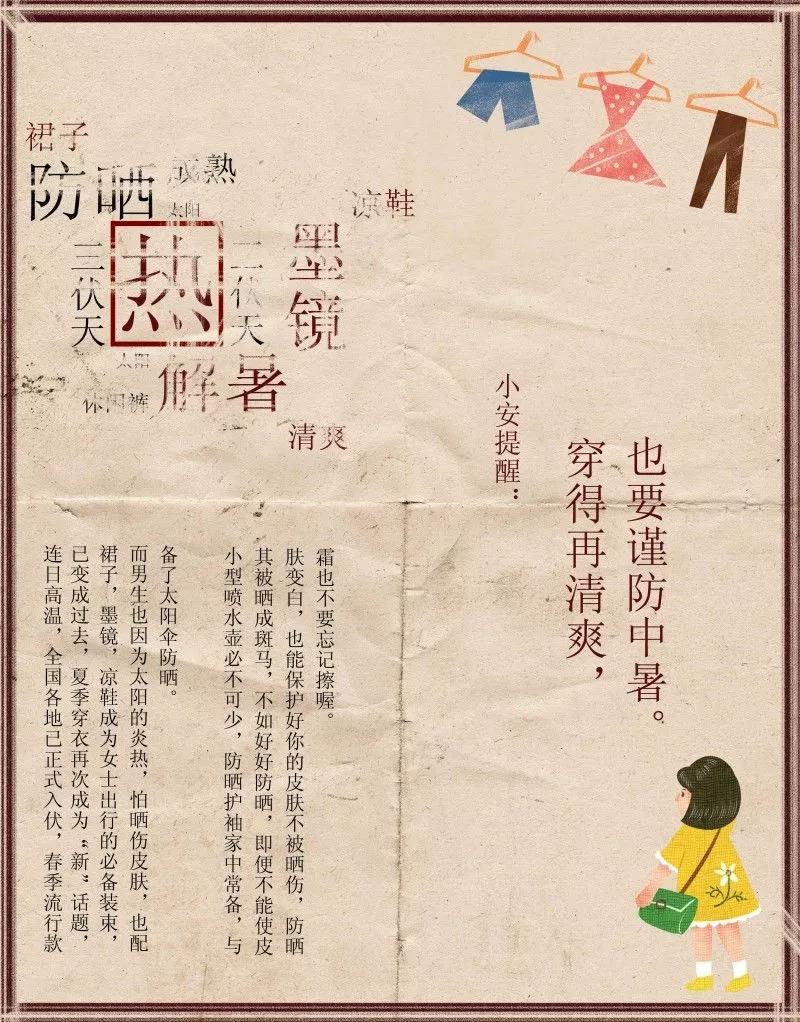 裙子
防晒
成熟
太阳
凉鞋
三伏天
热
二伏天
墨镜
太阳
解暑
休闲裤
清爽
小安提醒：
穿得再清爽，
也要谨防中暑。
连日高温，全国各地已正式入伏，春季流行款
已变成过去，夏季穿衣再次成为“新”话题，
裙子，墨镜，凉鞋成为女士出行的必备装束，
而男生也因为太阳的炎热，怕晒伤皮肤，也配
备了太阳伞防晒。
小型喷水壶必不可少，防晒护袖家中常备，与
其被晒成斑马，不如好好防晒，即便不能使皮
肤变白，也能保护好你的皮肤不被晒伤，防晒
霜也不要忘记擦喔。